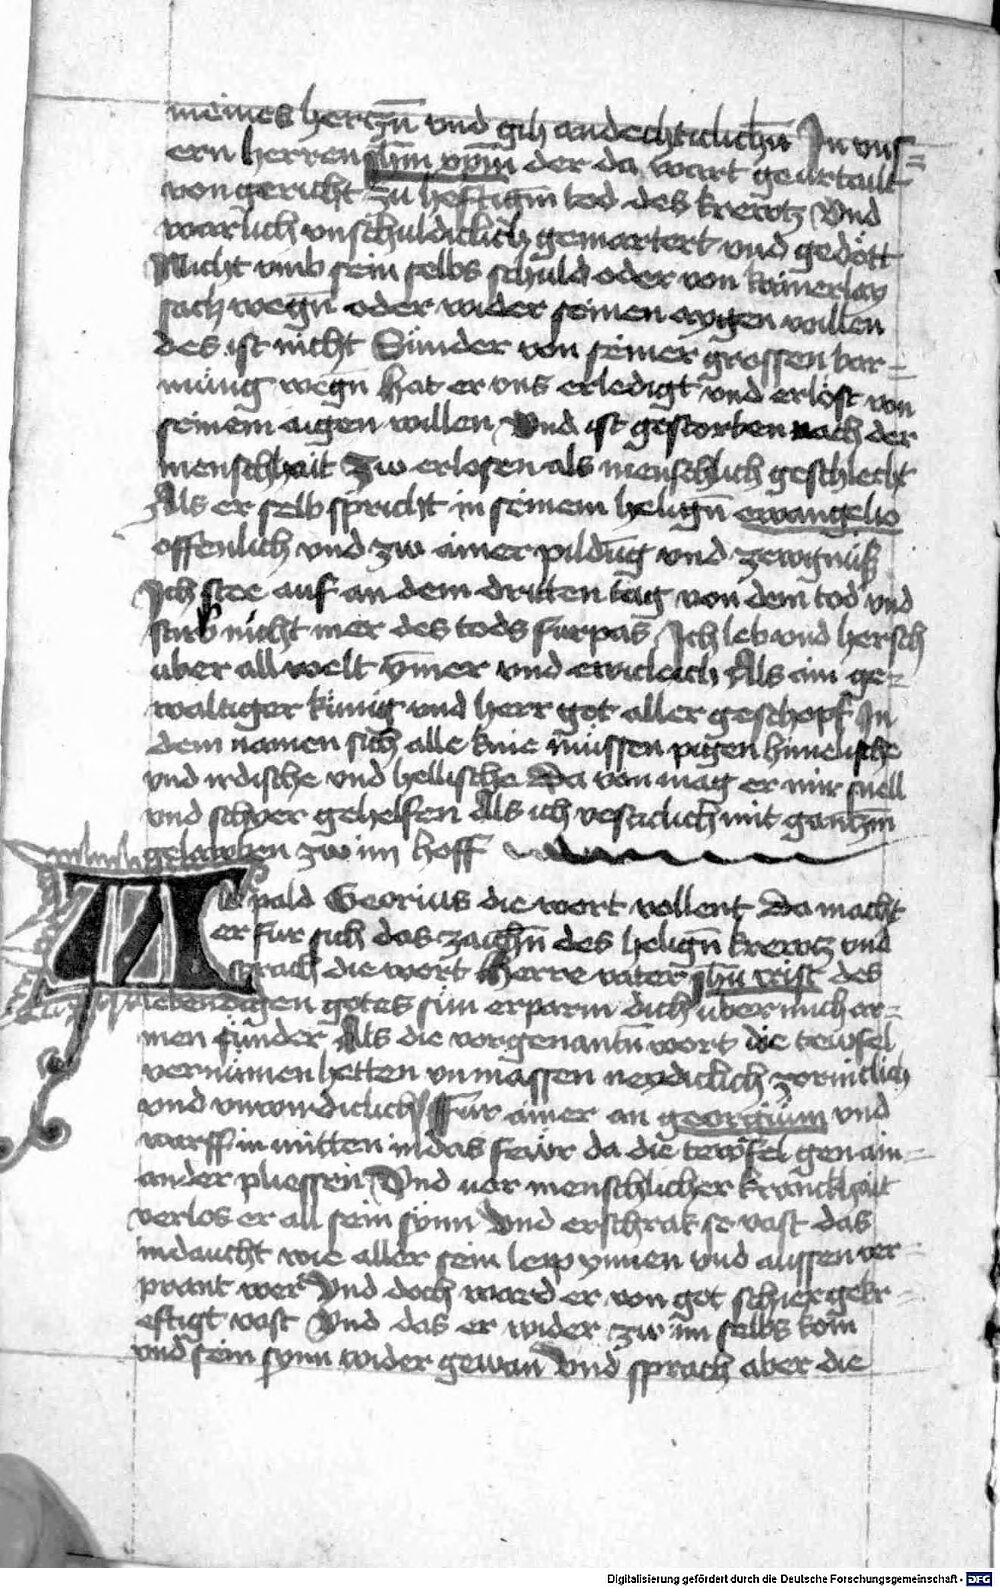 meines hertzn̄ vnd gih andechticlichn̄ In vns=
ern herren ih̄m xp̄m der da wart geurtailt
von gericht zu heftigm̄ tod des krewtz Vnd
warlich vnschuldiclich gemartert vnd gedött
Nicht vmb sein selbs schuld oder von kainerlay
sach wegn̄ oder wider seinen aygen willen
des ist nicht Sunder von seiner grossen bar=
mūng wegn̄ hat er vns erledigt vnd erlöst von
seinem aigen willen Vnd ist gestorben nach der
menschhait Zw erlosen als menschlich geschlecht
Als er selb spricht in seinem heilign̄ ewangelio
offenlich vnd zw ainer pildūg vnd zewgnüß
Ich stee auf an dem dritten tag von dem tod vnd
stirb nicht mer des tods furpas Ich leb vnd hersch
uber all welt ymer vnd ewicleich Als ain ge=
waltiger künig vnd herr got aller geschopf In
dem namen sich alle knie müssen pigen himelische
vnd irdische vnd hellische Da von mag er mir snell
vnd schyer gehelfen Als ich vesticlich mit gantzm̄
gelawben zw im hoff
Als pald Georius die wort vollent Da macht
er fur sich das zaichn̄ des heilign̄ krewtz vnd
sprach die wort Herre vater ih̄u crist des
lebendigen gotes sun erparm dich uber mich ar=
men sünder Als die vorgenantn̄ wort die tewfel
vernumen hetten vnmassen neydiclich zornticlich
vnd vnwirdiclich Fur ainer an georgium vnd
warff in mitten in das fewr da die tewfel gen ain=
ander pliessen Vnd vor menschlicher kranckhait
verlos er all sein synn Vnd erschrak so vast das
in daucht wie aller sein leip ynnen vnd aussen ver=
prant wer Vnd doch ward er von got schier gekr=
eftigt vast Vnd das er wider zw im selbs kom
vnd sein synn wider gewan Vnd sprach aber die
Digitalisierung gefördert durch die Deutsche Forschungsgemeinschaft - DFG